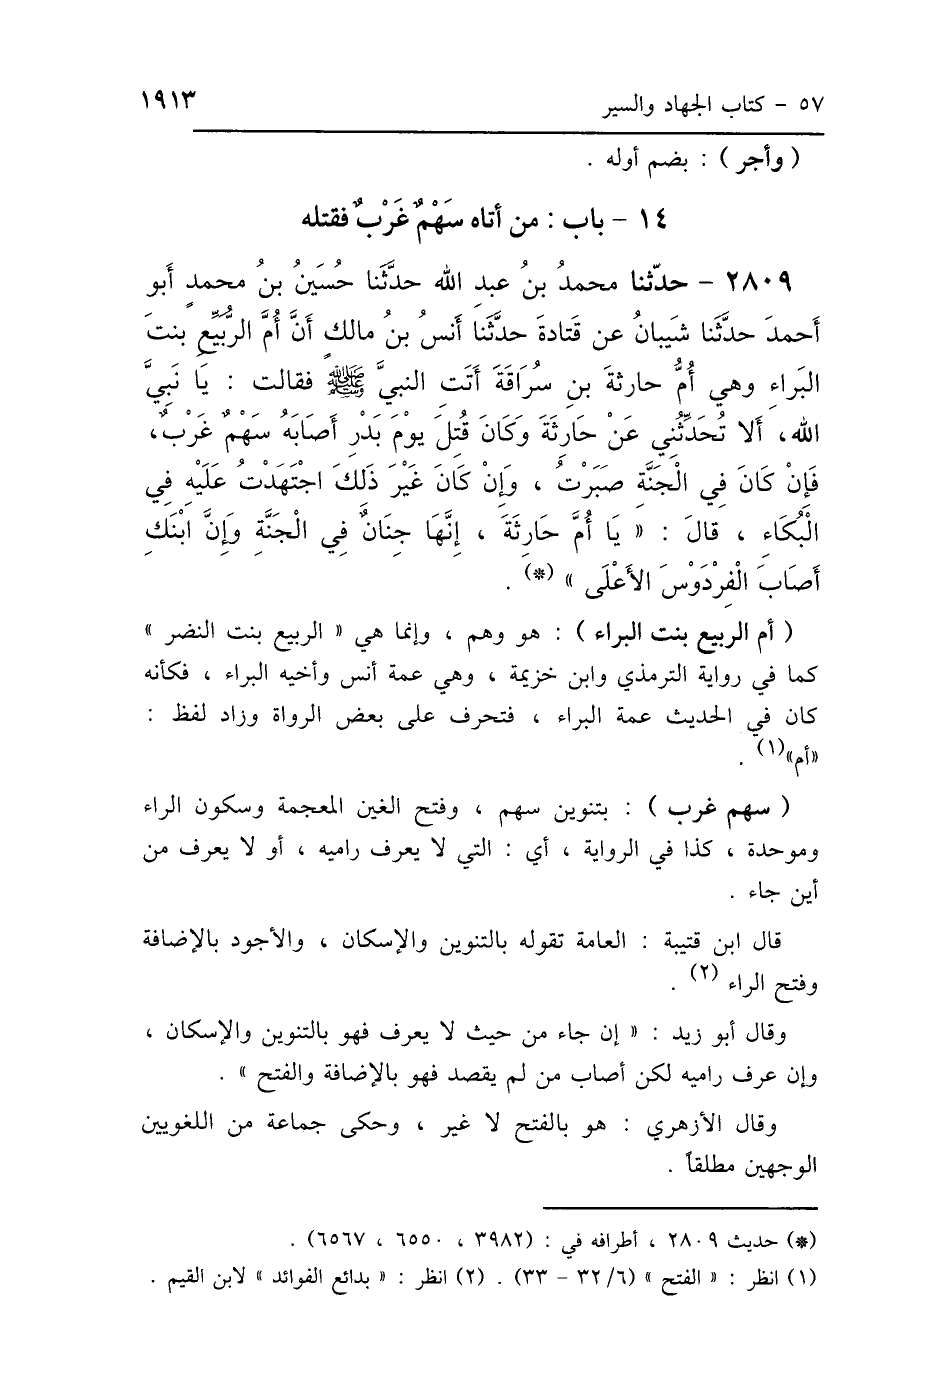 ٥٧ - كتاب الجهاد والسير ١٩١٣
( وأجر ) : بضم أوله .
١٤ - باب : من أتاه سَهْمٌ غَرْبٌ فقتله
٢٨٠٩ - حدّثنا محمدُ بنُ عبدِ الله حدَّثَنا حُسَينُ بنُ محمدٍ أَبو
أَحمدَ حدَّثَنا شَيبانُ عن قَتادةَ حدَّثَنا أَنسُ بنُ مالكٍ أَنَّ أُمَّ الرُّبَيِّعِ بنتَ
البَراءِ وهي أُمُّ حارثةَ بنِ سُرَاقَةَ أَتَت النبيَّ ﷺ فقالت : يَا نَبِيَّ
الله، أَلا تُحَدِّثُنِي عَنْ حَارِثَةَ وَكَانَ قُتِلَ يومَ بَدْرٍ أَصَابَهُ سَهْمٌ غَرْبٌ،
فَإِنْ كَانَ فِي الْجَنَّةِ صَبَرْتُ ، وَإِنْ كَانَ غَيْرَ ذَلِكَ اجْتَهَدْتُ عَلَيْهِ فِي
الْبُكَاءِ ، قالَ : « يَا أُمَّ حَارِثَةَ ، إِنَّهَا جِنَانٌ فِي الْجَنَّةِ وَإِنَّ ابْنَكِ
أَصَابَ الْفِرْدَوْسَ الأَعْلَى » (*) .
( أم الربيع بنت البراء ) : هو وهم ، وإنما هي « الربيع بنت النضر »
كما في رواية الترمذي وابن خزيمة ، وهي عمة أنس وأخيه البراء ، فكأنه
كان في الحديث عمة البراء ، فتحرف على بعض الرواة وزاد لفظ :
«أم»(١) .
( سهم غرب ) : بتنوين سهم ، وفتح الغين المعجمة وسكون الراء
وموحدة ، كذا في الرواية ، أي : التي لا يعرف راميه ، أو لا يعرف من
أين جاء .
قال ابن قتيبة : العامة تقوله بالتنوين والإسكان ، والأجود بالإضافة
وفتح الراء (٢) .
وقال أبو زيد : « إن جاء من حيث لا يعرف فهو بالتنوين والإسكان ،
وإن عرف راميه لكن أصاب من لم يقصد فهو بالإضافة والفتح » .
وقال الأزهري : هو بالفتح لا غير ، وحكى جماعة من اللغويين
الوجهين مطلقاً .
(*) حديث ٢٨٠٩ ، أطرافه في : (٣٩٨٢ ، ٦٥٥٠ ، ٦٥٦٧) .
(١) انظر : « الفتح » (٦/ ٣٢ - ٣٣) . (٢) انظر : « بدائع الفوائد » لابن القيم .